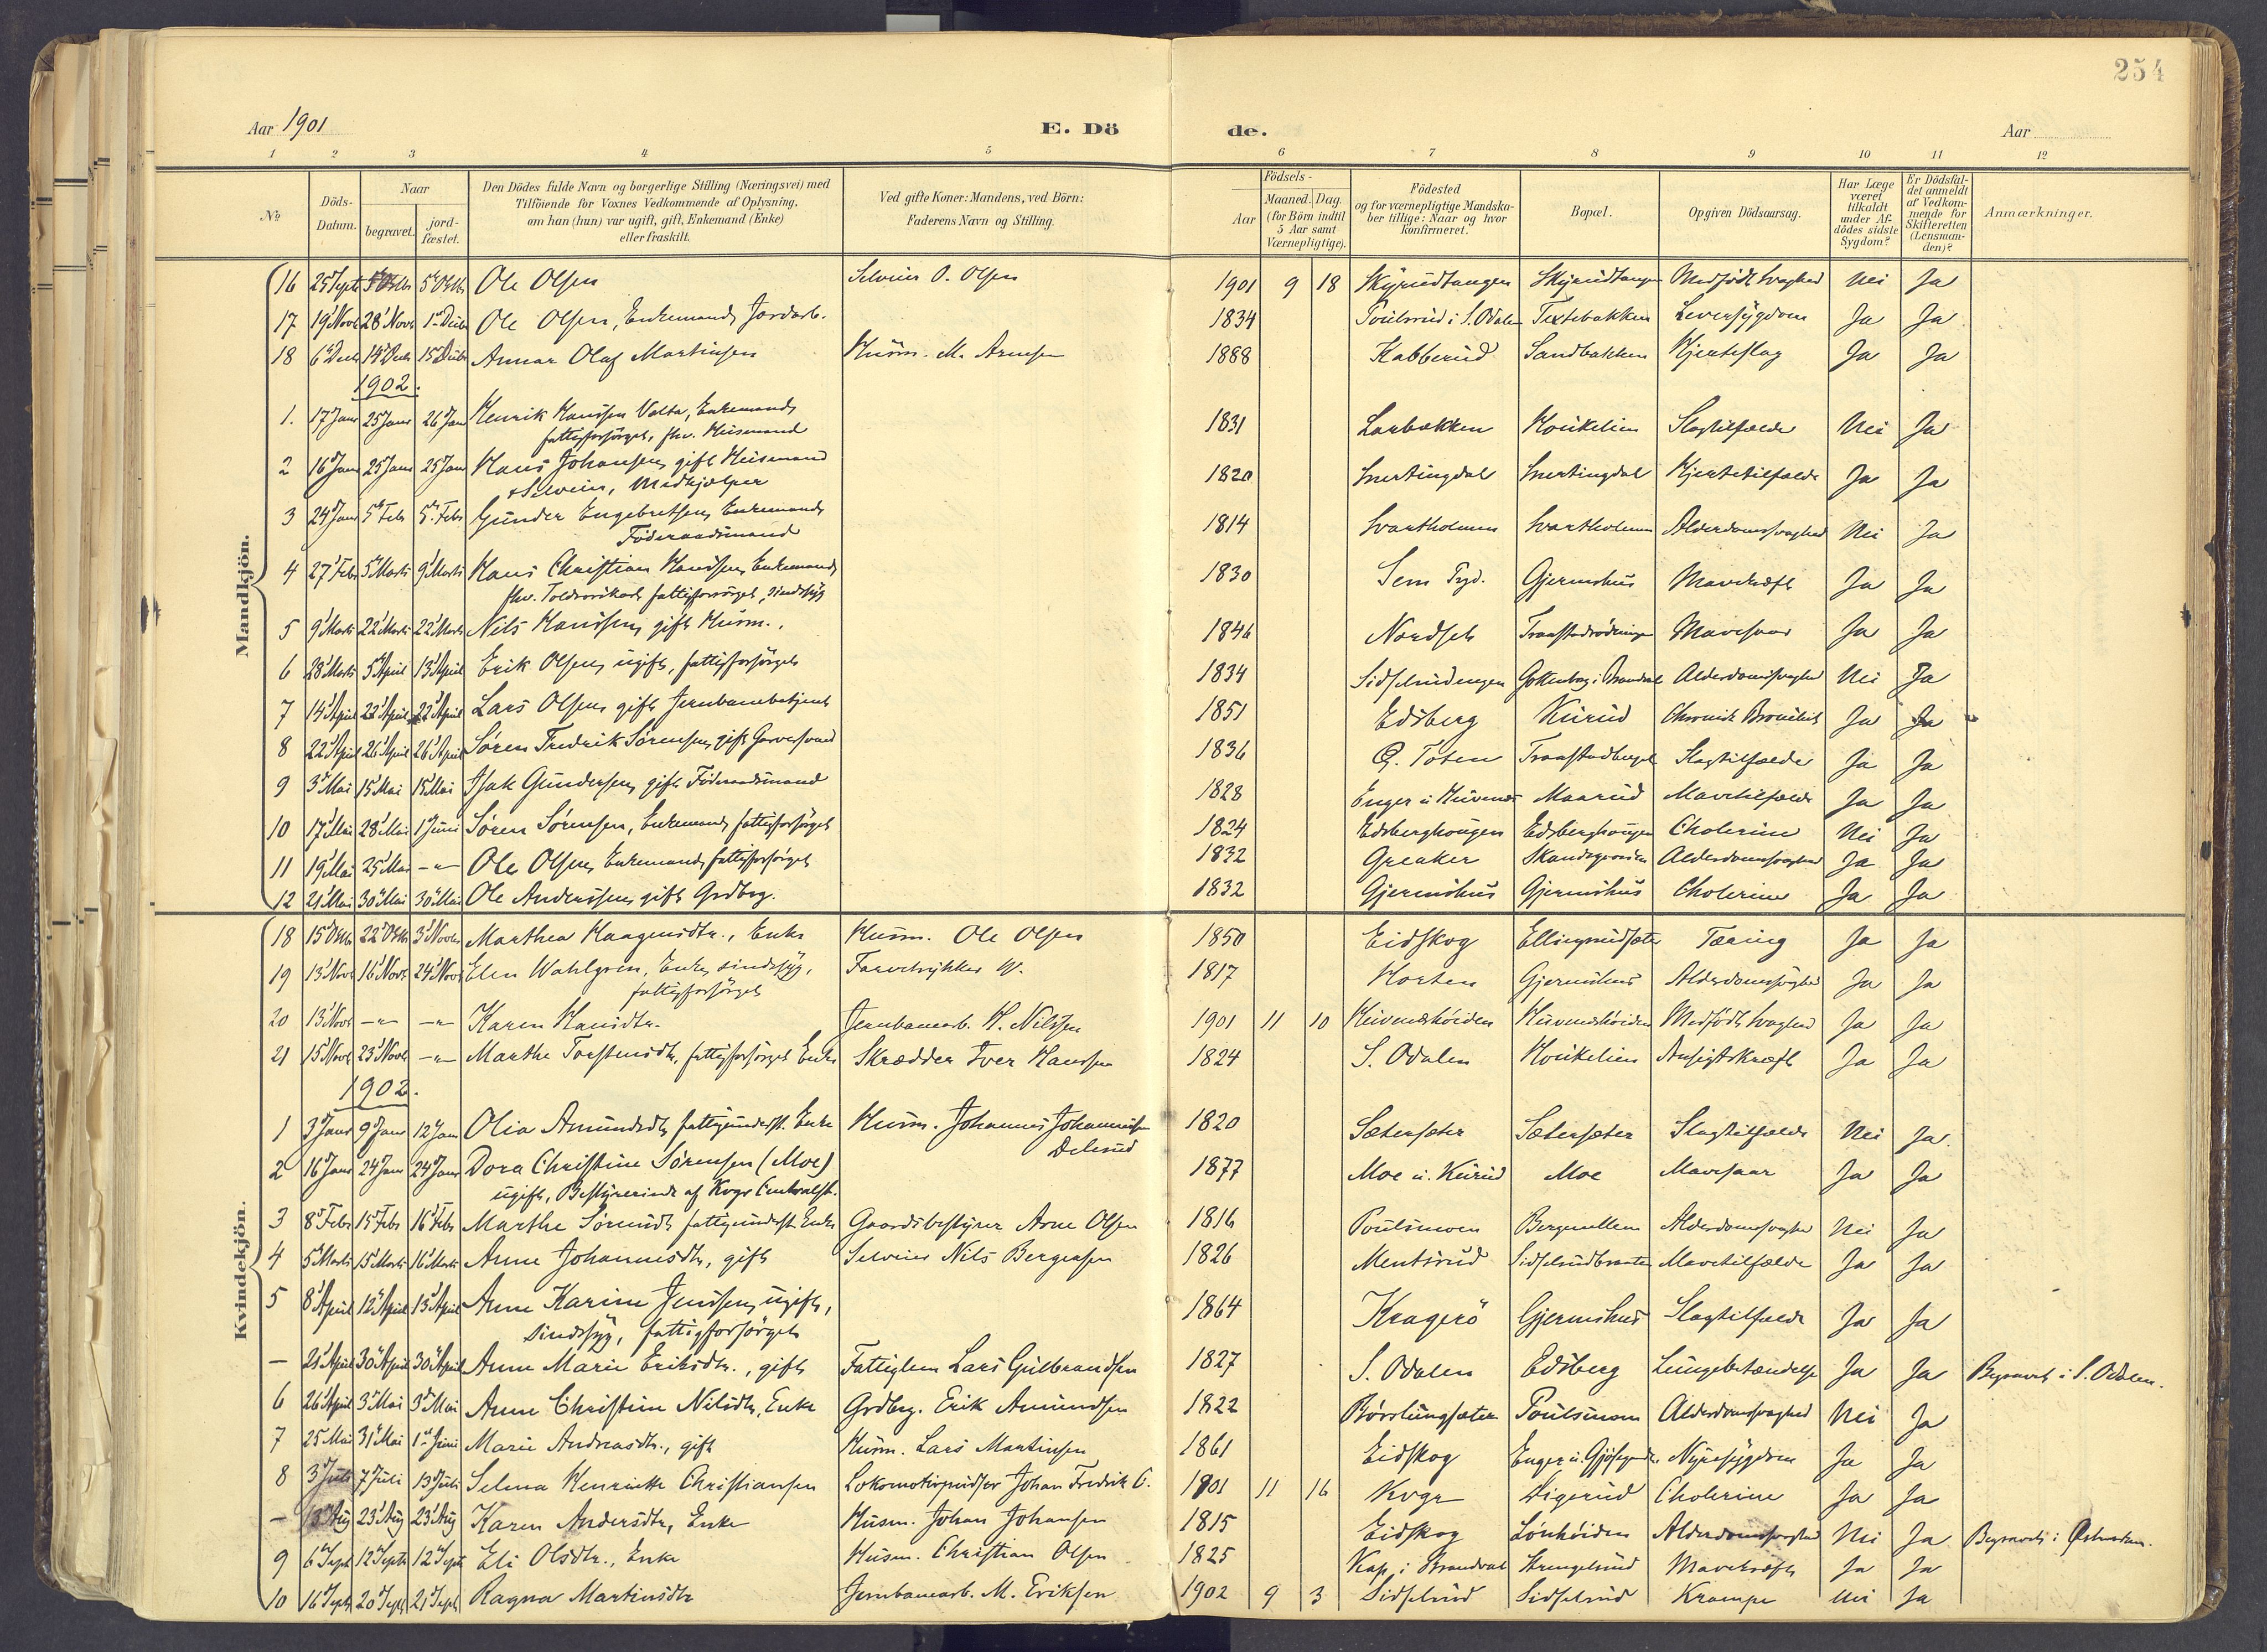 254
Aar 1901 E. Döde. Aar
1 2 3 4 5 6 7 8 9 10 11 12
№
Döds-Datum.
Naar
begravet.
jordfæstet.
Den Dödes fulde Navn og borgerlige Stilling (Næringsvei) med
Tilföiende for Voxnes Vedkommende af Oplysning.
om han (hun) var ugift, gift, Enkemand (Enke)
eller fraskilt.
Ved gifte Koner: Mandens, ved Börn:
Faderens Navn og Stilling.
Födsels-
Aar
Maaned. Dag.
(for Börn indtil
5 Aar samt
Værnepligtige).
Födested
og for værnepligtige Mandskaber tillige: Naar og hvor
Konfirmeret.
Bopæl.
Opgiven Dödsaarsag.
Har Læge
været
tilkaldt
under Afdödes sidste
Sygdom?
Er Dödsfaldet anmeldt
af Vedkommende for
Skifteretten
(Lensmanden)?
Anmærkninger.
Mandkjön.
16 25 Septr 5 Oktb 5 Oktb Ole Olsen Selveier O. Olsen 1901 9 18 Skyrudtangen Skyrudtangen Medfødt Svaghed Nei Ja
17 19 Novb 28 Novb 1 Decb Ole Olsen, Enkemand, Jordarb. 1834 Poulsrud i S. Odalen Textebakken Leversygdom Ja Ja
18 6 Decb 14 Decb 15 Decb Annar Olaf Martinsen Husm. M. Arnesen 1888 Kabberud Sandbakken Hjerteslag Ja Ja
1902.
1. 17 Janr 25 Janr 26 Jan Henrik Hansen Valta, Enkemand, 1831 Larbækken Houkelien Slagtilfælde Nei Ja
fattigforsørget, fhv. Husmand
2 16 Janr 25 Janr 25 Janr Hans Johansen, gift Husmand 1820 Snertingdal Snertingdal Hjertetilfælde Ja Ja
+ Selveier, Medhjælper
3 24 Janr 5 Feb 5 Febr Gunder Engebretsen, Enkemand, 1814 Svartholmen Svartholmen Alderdomssvaghed Nei Ja
Föderaadsmand
4 27 Febr 5 Marts 9 Marts Hans Christian Knudsen, Enkemand, 1830 Sem Pgd. Gjermshus Mavekræft Ja Ja
fattigforsørget, sindssyg
5 9 Marts 22 Marts 22 Marts Nils Hansen, gift Husm. 1846 Nordset Mavesaar Ja Ja
6 28 Marts 5 April 13 April Erik Olsen, ugift, fattigforsørget 1834 Sidselrudengen i Brandval Alderdomssvaghed Nei Ja
7 14 April 22 April 22 April Lars Olsen, gift Jernbanebetjent 1851 Edsberg Kurud Chronisk Bronchit Ja Ja
8 22 April 26 April 26 April Søren Fredrik Sørensen, gift Garversvend 1836 Ø. Toten Traastadberget Slagtilfælde Ja Ja
9 3 Mai 15 Mai 15 Mai Isak Gundersen, gift Föderaadsmand 1828 Enger u Huvenæs Maarud Mavetilfælde Ja Ja
10 17 Mai 28 Mai 1 Juni Søren Sørensen, Enkemand, fattigforsørget 1824 Edsberghougen Edsberghougen Cholerine Nei Ja
11 19 Mai 25 Mai -"- Ole Olsen, Enkemand, fattigforsørget 1832 Greaker Skandsgaarden Alderdomssvaghed Ja Ja
12 21 Mai 30 Mai 30 Mai Ole Anderssen, gift Grdbrg. 1832 Gjermshus Gjermshus Cholerine Ja Ja
Kvindekjön.
18 15 Oktb 22 Oktb 3 Novb Marthea Haagensdtr., Enke Husm. Ole Olsen 1850 Eidskog Ellingrudsæter Tæring Ja Ja
19 13 Novb 16 Novb 24 Novb Elen Wahlgren, Enke, sindssyg, Farvetrykker W. 1817 Horten Gjermshus Alderdomssvaghed Ja Ja
fattigforsørget
20 13 Novb -"- -"- Karen Hansdtr. Jernbanearb. H. Nilssen 1901 11 10 Huvenæshöiden Huvenæshöiden Medfødt Svaghed Ja Ja
21 15 Novb 23 Novb -"- Marthe Torstensdtr, fattigforsørget Enke Skrædder Iver Hansen 1824 S. Odalen Houkelien Ansigtskræft Ja Ja
1902.
1 3 Janr 9 Janr 12 Jan Olia Amundsdtr, fattigunderst. Enke Husm. Johannes Johannessen 1820 Sætersæter Sætersæter Slagtilfælde Nei Ja.
Delerud
2 16 Janr 24 Jan 24 Janr Dora Christine Sørensen (Moe) 1877 Moe u. Kurud Moe Mavesaar Ja Ja
ugift, Bestyrerinde af Kvgr Centralst.
3 8 Febr 15 Febr 16 Febr Marthe Sørensdtr, fattigunderst. Enke Gaardsbestyrer Arne Olsen 1816 Poulsmoen Bergemellem Alderdomssvaghed Nei Ja
4 5 Marts 15 Marts 16 Marts Anne Johannesdtr, gift Selveier Nils Bergersen 1826 Mentsrud Sidselrudbraaten Mavetilfælde Ja Ja
5 8 April 12 April 13 April Anne Karine Jensen, ugift, 1864 Kragerö Gjermshus Slagtilfælde Ja Ja
sindssyg, fattigforsørget
— 21 April 30 April 30 April Anne Marie Eriksdtr., gift Fattiglem Lars Gulbrandsen 1827 S. Odalen Edsberg Lungebetændelse Ja Ja Begravet i S. Odalen.
6 26 April 3 Mai 3 Mai Anne Christine Nilsdtr, Enke Grdbrg. Erik Amundsen 1822 Börslungsæter Poulsmoen Alderdomssvaghed Nei Ja
7 25 Mai 31 Mai 1 Juni Marie Andreasdtr., gift Husm. Lars Martinsen 1861 Eidskog Enger u. Nyresygdom Ja Ja
8 3 Juli 7 Juli 13 Juli Selma Henriette Christiansen Lokomotivpudser Johan Fredrik C. 1901 11 16 Kvgr Digerud Cholerine Ja Ja
— 13 Aug 23 Aug 23 Aug Karen Andersdtr, Enke Husm. Johan Johansen 1815 Eidskog Lönhöiden Alderdomssvaghed Nei Ja Begravet i
9 6 Sept 12 Septr 12 Sept Eli Olsdtr., Enke Husm. Christian Olsen 1825 Kap. i Brandval Strengelsrud Mavekræft Ja Ja
10 16 Septr 20 Sept 21 Sept Ragna Martinsdtr Jernbanearb. M. Eriksen 1902 9 3 Sidselrud Sidselrud Krampe Nei Ja